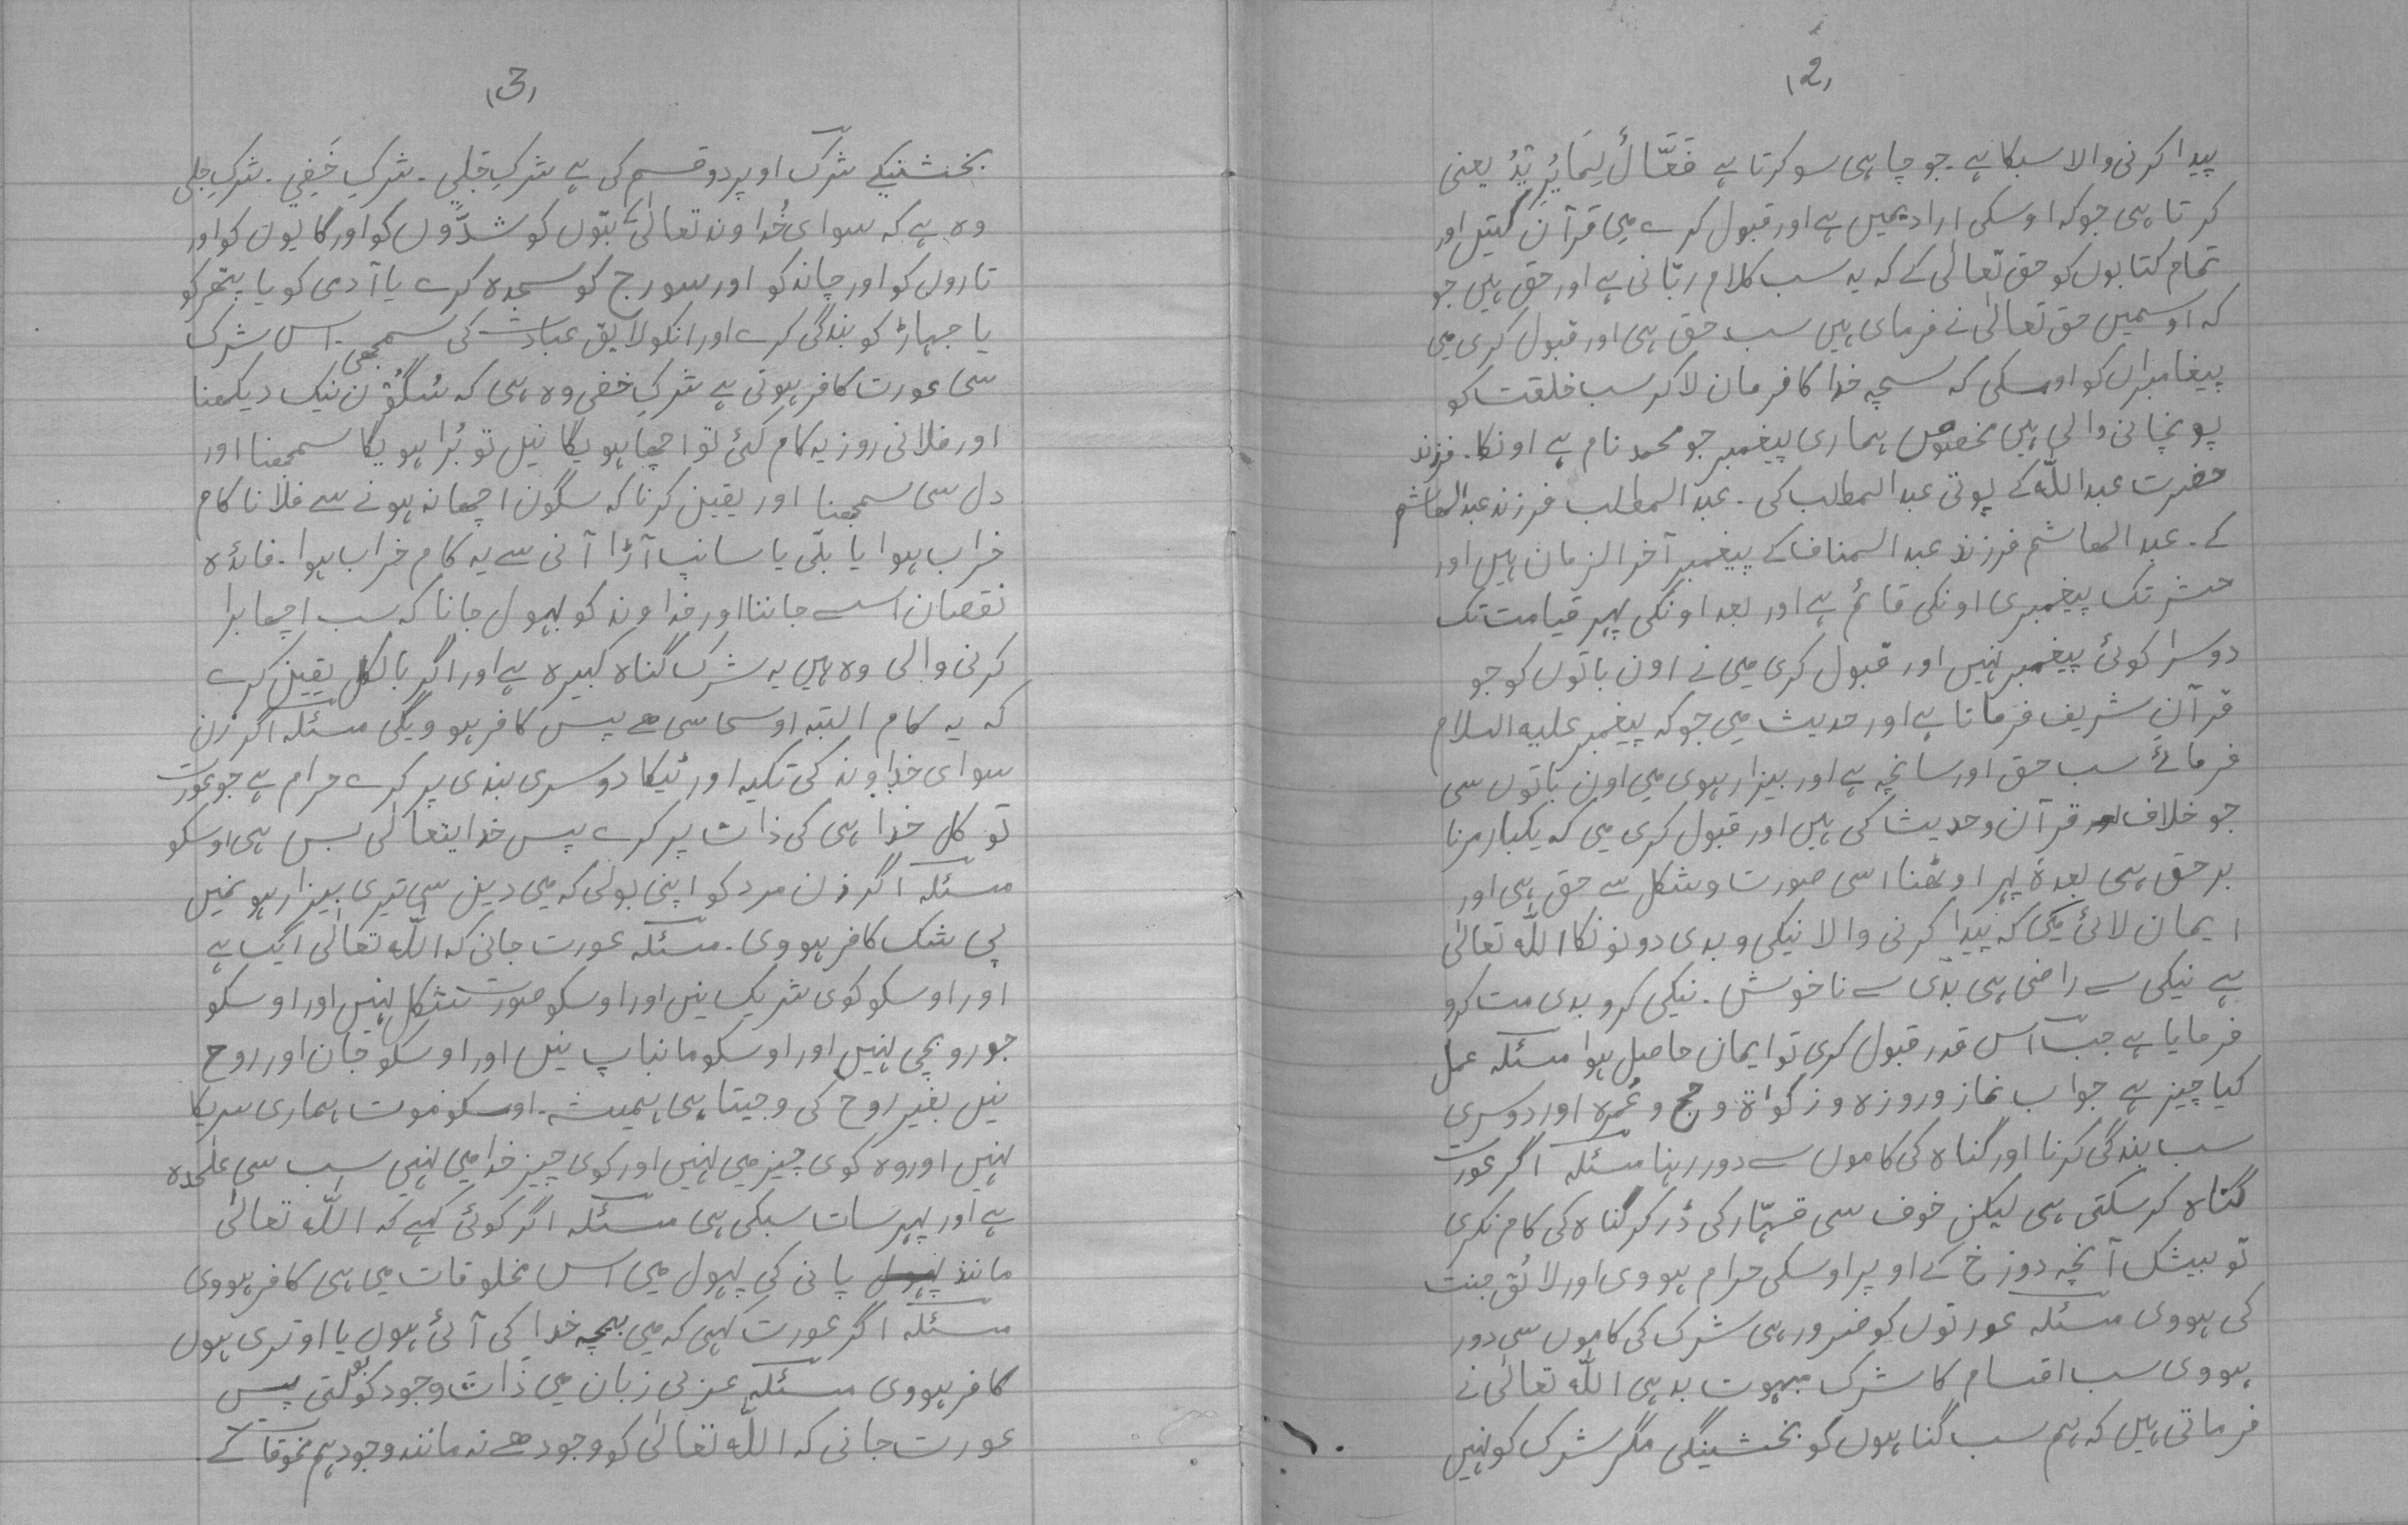 (2)
پیدا کرنی والا سبکا ہے۔ جو چاہی سو کرتا ہے فَعَّالٌ لِمَا یُرِیْدُ یعنی
کرتا ہی جو کہ اوسکی ارادیمیں ہے اور قبول کرے میی قرآن کتیں اور
تمام کتابوں کو حق تعالٰی کے کہ یہ سب کلام ربّانی ہے اور حق ہیں جو
کہ اوسمیں حق تعالٰی نے فرمای ہیں سب حق ہی اور قبول کری میی
پیغامبراں کو اوسکی کہ سچہ خدا کا فرمان لا کر سب خلقت کو
پونچانی والی ہیں مخصوص ہماری پیغمبر جو محمد نام ہے اونکا۔ فرزند
حضرت عبداللّٰہ کے پوتی عبدالمطلب کی۔ عبدالمطلب فرزند عبدالھاشم
کے۔ عبدالھاشم فرزند عبدالمناف کے پیغمبر آخر الزمان ہیں اور
حشر تک پیغمبری اونکی قائم ہے اور بعد اونکی پہر قیامت تک
دوسرا کوئی پیغمبر نہیں اور قبول کری میی نے اون باتوں کو جو
قرآن شریف فرماتا ہے اور حدیث میی جو کہ پیغمبر علیہ السلام
فرمائے سب حق اور سانچہ ہے اور بیزار ہوی میی اون باتوں سی
جو خلاف اور قرآن و حدیث کی ہیں اور قبول کری میی کہ یکبار مرنا
برحق ہی بعدہٗ پہر اوٹھنا اسی صورت و شکل سے حق ہی اور
ایمان لائی میکی کہ پیدا کرنی والا نیکی و بدی دونونکا اللّٰہ تعالٰی
ہے نیکی سے راضی ہی بدی سے ناخوش۔ نیکی کرو بدی مت کرو
فرمایا ہے جب اس قدر قبول کری تو ایمان حاصل ہوا مسئلہ عمل
کیا چیز ہے جواب نماز و روزہ و زکواۃ و حج و عُمرہ اور دوسری
سب بندگی کرنا اور گناہ کی کاموں سے دور رہنا مسئلہ اگر عورت
گناہ کر سکتی ہی لیکن خوف سی قہّار کی ڈر کر گناہ کی کام نکری
تو بیشک آنچہ دوزخ کے اوپر اوسکی حرام ہووی اور لائق جنت
کی ہووی مسئلہ عورتوں کو ضرور ہی شرک کی کاموں سی دور
ہووی سب اقسام کا شرک مبہوت بد ہی اللّٰہ تعالٰی نے
فرماتی ہیں کہ ہم سب گناہوں کو بخشینگی مگر شرک کو نہیں
(3)
بخشنیکے شرک اوپر دو قسم کی ہے شرکِ جَلِی۔ شرکِ خَفِی۔ شرکِ جلی
وہ ہے کہ سوای خُداوند تعالٰی کے بتّوں کو شدّوں کو اور گایوں کو اور
تاروں کو اور چاند کو اور سورج کو سجدہ کرے یا آدمی کو یا پتّھر کو
یا جہاڑ کو بندگی کرے اور انکو لایق عبادت کی سمجھی۔ اس شرک
سی عورت کافر ہوتی ہے شرکِ خفی وہ ہی کہ سُگُون نیک دیکھنا
اور فلانی روز یہ کام کئی تو اچھا ہویگا نیں تو بُرا ہویگا سمجھنا اور
دل سی سمجھنا اور یقین کرنا کہ سگون اچھا نہ ہونے سے فلانا کام
خراب ہوا یا بلّی یا سانپ آڑا آنی سے یہ کام خراب ہوا۔ فائدہ
نقصان اسے جاننا اور خداوند کو بہول جانا کہ سب اچھا برا
کرنی والی وہ ہیں یہ شرک گناہ کبیرہ ہے اور اگر بالکل یقین کرے
کہ یہ کام البتہ اوسی سی ھے پس کافر ہوویگی مسئلہ اگر زن
سوای خداوند کی تکیہ اور ٹیکا دوسری بندی پر کرے حرام ہے جو عورت
توکل خدا ہی کی ذات پر کرے پس خدایتعالٰی بس ہی اوسکو
مسئلہ اگر زن مرد کو اپنی بولی کہ میی دین سی تیری بیزار ہو نمیں
بی شک کافر ہووی۔ مسئلہ عورت جانی کہ اللّٰہ تعالٰی ایک ہے
اور اوسکو کوی شریک نیں اور اوسکو صورت شکل نہیں اور اوسکو
جورو بچی نہیں اور اوسکو مانباپ نیں اور اوسکو جان اور روح
نیں بغیر روح کی وجیتا ہی ہمیشہ۔ اوسکو موت ہماری سریکا
نہیں اور وہ کوی چیز میی نہیں اور کوی چیز خدا میی نہیی سب سی علٰحدہ
ہے اور پہر سات سبکی ہی مسئلہ اگر کوئی کہے کہ اللّٰہ تعالٰی
مانند پہول پانی کی پہول میی اس مخلوقات میی ہی کافر ہووی
مسئلہ اگر عورت کہی کہ میی بیچہ خدا کی آئی ہوں یا اوتری ہوں
کافر ہووی مسئلہ عربی زبان میی ذات وجود کو بولتی پس
عورت جانی کہ اللّٰہ تعالٰی کو وجود ھے نہ مانند وجود ہم مخوقات کے